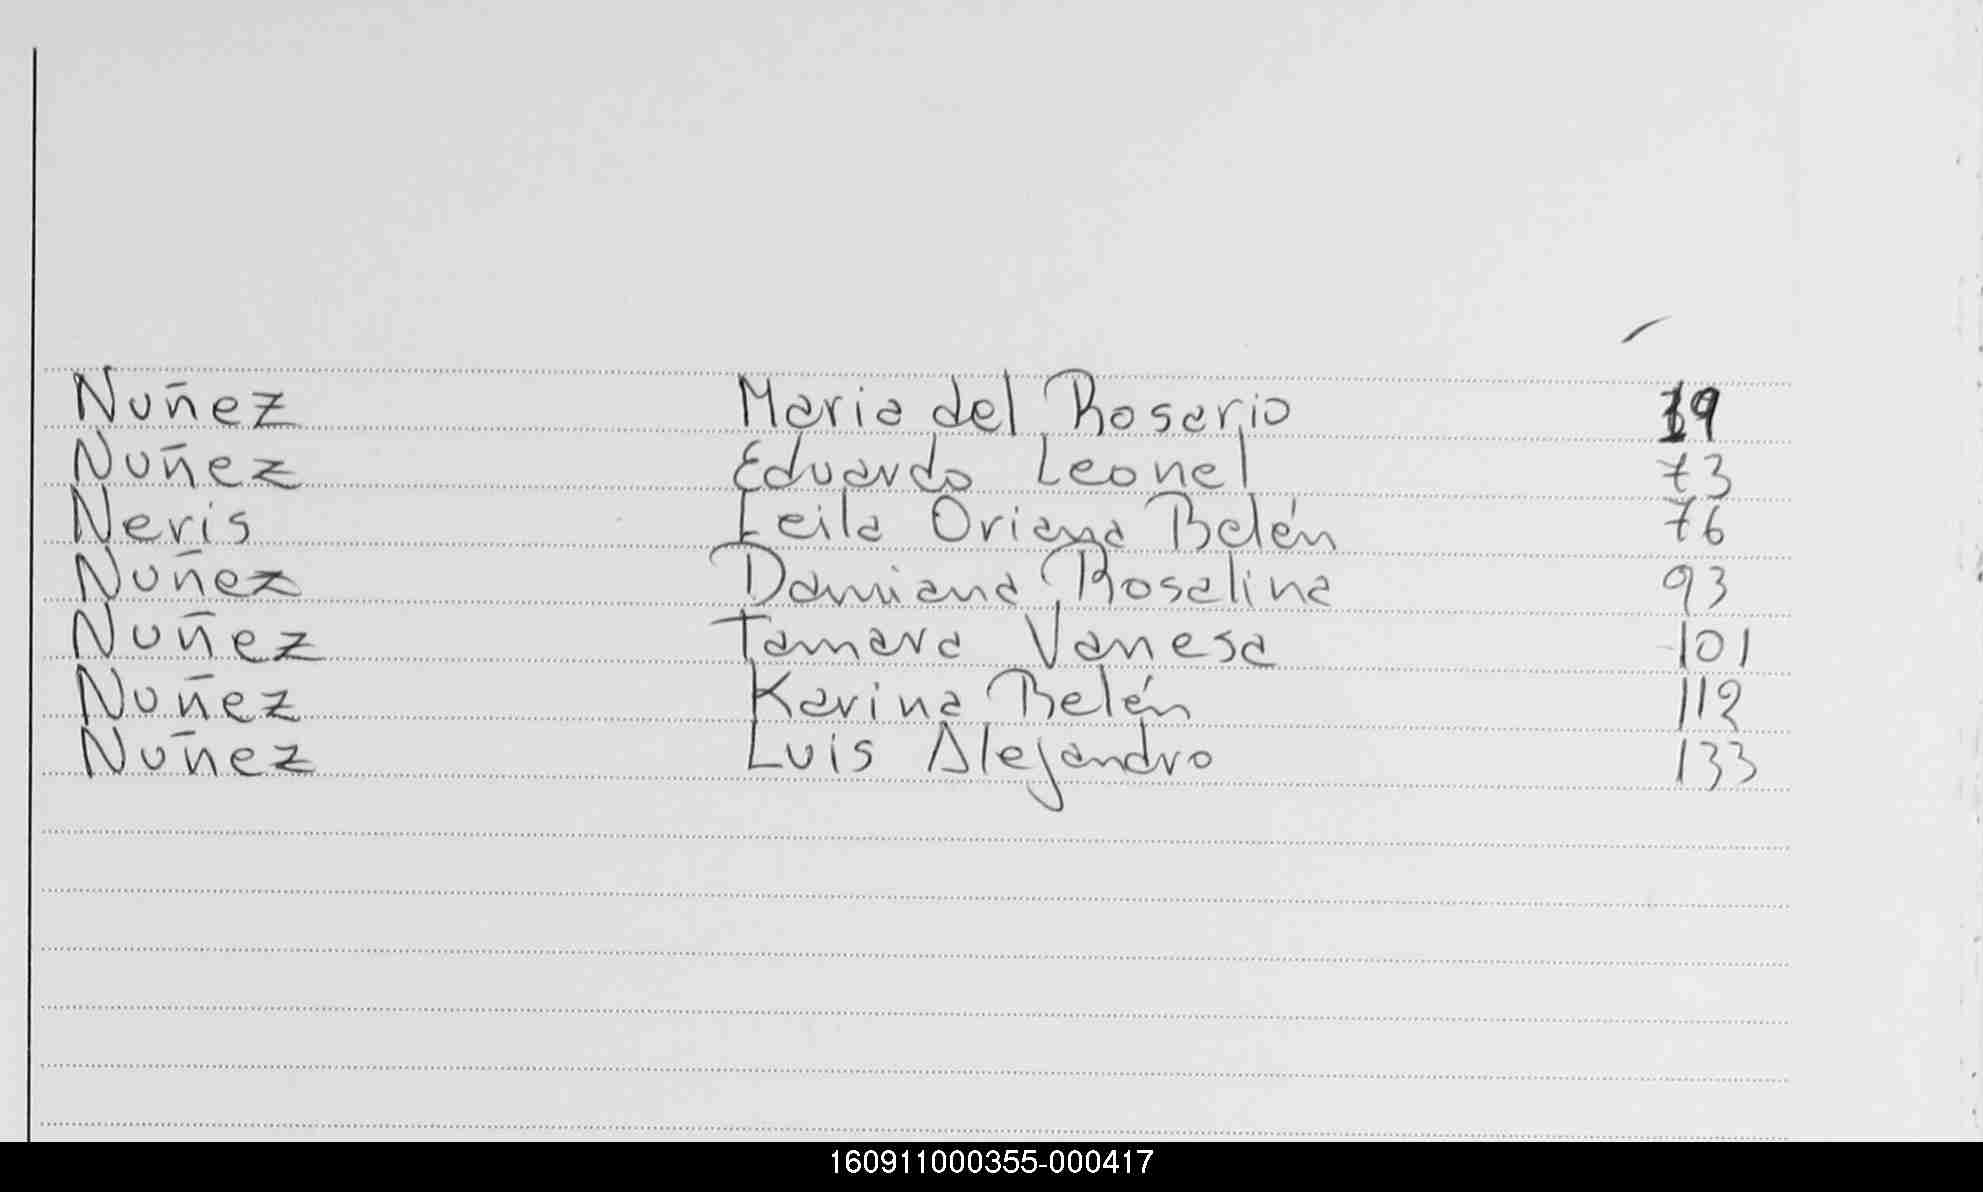 Nuñez Maria del Rosario 19
Nuñez Eduardo Leonel 73
Neris Leila Oriana Belén 76
Nuñez Damiana Rosalina 93
Nuñez Tamara Vanesa 101
Nuñez Karina Belén 112
Nuñez Luis Alejandro 133
160911000355-000417